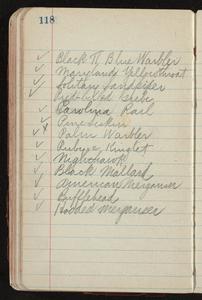 118
Black Th Blue Warbler
Maryland Yellowthroat
Solitary Sandpiper
Pied-billed Grebe
Carolina Rail
Pine Siskin
Palm Warbler
Ruby-c Kinglet
Nighthawk
Black Mallard
American Merganser
Bufflehead
Hooded Merganser